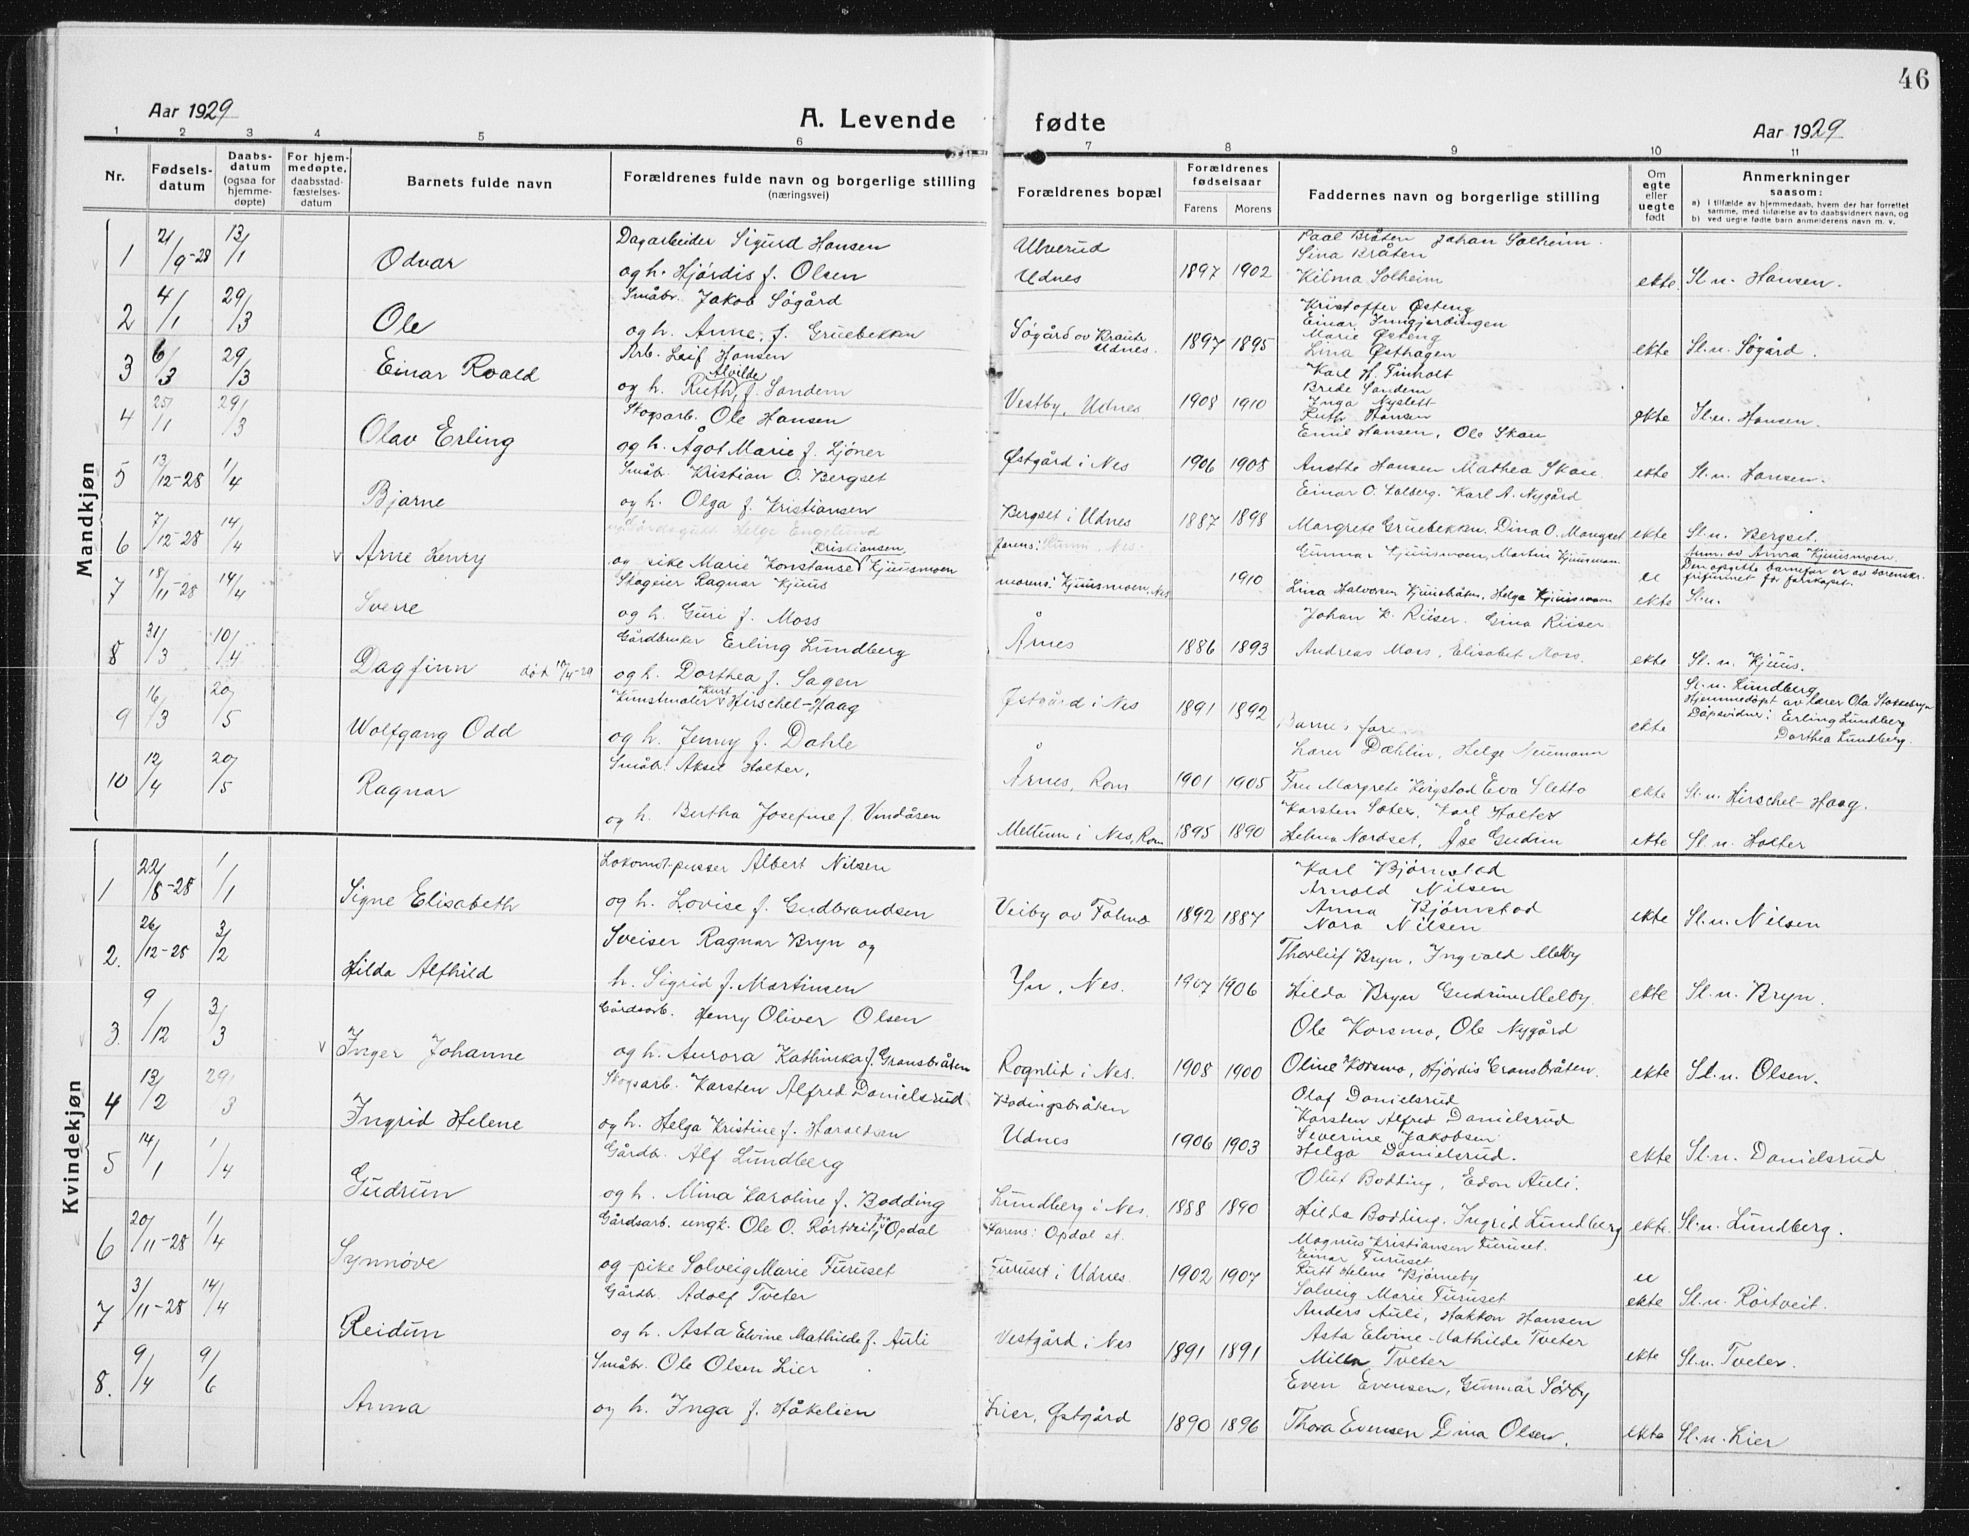 46
Aar 1929
A. Levende fødte
Aar 1929
1 2 3 4 5 6 7 8 9 10 11
Nr.
Fødsels-
datum
Daabs-
datum
(ogsaa for
hjemme-
døpte)
For hjem-
medøpte,
daabsstad-
fæstelses-
datum
Barnets fulde navn
Forældrenes fulde navn og borgerlige stilling
(næringsvei)
Forældrenes bopæl
Forældrenes
fødselsaar
Farens Morens
Faddernes navn og borgerlige stilling
Om
egte
eller
uegte
født
Anmerkninger
saasom:
a) I tilfælde av hjemmedaab, hvem der har forrettet
samme, med tilføielse av to daabsvidners navn, og
b) ved uegte fødte barn anmelderens navn m. v.
Mandkjøn
1 21/9-28 13/1 Odvar
Dagarbeider Sigurd Hansen
og h. Hjördis f. Olsen
Ulverud
Udnes
1897 1902
Paal Bråten Johan Solheim.
Sina Bråten
Kilma Solheim
ekte. Sl. n. Hansen.
2 4/1 29/3 Ole
Småbr. Jakob Søgård
og h. Anne f. Gruebekken
Søgård av
Udnes.
1897 1895
Kristoffer Østeng
Einar Inngjerdingen
Marie Østeng
Lina Østhagen
ekte Sl. n. Søgård.
3 6/3 29/3 Einar Roald
Arb. Leif Hansen
Alvilde
og h. Ruth, f. Sandem
Vestby, Udnes
1908 1910
Karl H. Finholt
Brede Sandem
Inga Nyslett
Ruth Hansen
ekte Sl. n. Hansen.
4 25/1 29/3 Olav Erling
Skogsarb. Ole Hansen
og h. Ågot Marie f. Ljöner
Østgård i Nes
1906 1908
Emil Hansen, Ole Skau
Anette Hansen Mathea Skau
ekte Sl. n. Hansen.
5 13/12-28 1/4 Bjarne
Småbr. Kristian O. Bergset
og h. Olga f. Kristiansen
Bergset i Udnes
1887 1898
Einar O. Solberg. Karl A. Nygård
Margrete Gruebekken. Dina O. Mangset
ekte Sl. n. Bergset.
6 7/12-28 14/4 v Arne Henry
Gårdsgutt Helge Englund
Kristiansen
og pike Marie Konstanse Kjuusmoen
farens: Nes
morens: Kjuusmoen, Nes
1910
Gunnar Kjuusmoen, Martin Kjuusmoen
Lina Halvorsen Kjuusbråten, Helga Kjuusmoen
u
ekte
Anm. av Anna Kjuusmoen
Den opgitte barnefar er av sorenskr.
frifunnet for farskapet.
Sl. n.
7 18/11-28 14/4 Sverre
Skogeier Ragnar Kjuus
og h. Guri f. Moss
Årnes
1886 1893
Johan K. Riiser. Gina Riiser
Andreas Moss, Elisabet Moss.
ekte Sl. n. Kjuus.
8 31/3 10/4 Dagfinn død
Gårdbruker Erling Lundberg
og h. Dorthea f. Sagen
Østgård i Nes
1891 1892
ekte
Sl. n. Lundberg
Hjemmedøpt av lærer Ola Stokkebryn
Dåpsvidner: Erling Lundberg
Dorthea Lundberg.
9 16/3 20/5 Wolfgang Odd
Kunstmaler Kurt Hirschel-Haag
og h. Jenny f. Dahle
Årnes, Rom
1901 1905
Barnets foreldre
Lærer Dæhlin, Helge Neumann
Fru Margrete Kirgstad Eva Sletto
ekte Sl. n. Hirschel-Haag.
10 12/4 20/5 Ragnar
Småbr. Aksel Holter,
og h. Bertha Josefine f. Vindåsen
Mellum i Nes, Rom
1895 1890
Karsten Sæter, Karl Holter
Helma Nordset, Åse Gudrun
ekte Sl. n. Holter
Kvindekjøn
1 22/8-28 1/1 Signe Elisabeth
Lokomot.pusser Albert Nilsen
og h. Lovise f. Gudbrandsen
Veiby av Folmo
1892 1887
Karl Bjørnstad
Arnold Nilsen
Anna Bjørnstad
Nora Nilsen
ekte Sl. n. Nilsen
2. 26/12-28 3/2 Hilda Alfhild
Sveiser Ragnar Bryn og
h. Sigrid f. Martinsen
Yn, Nes.
1907 1906
Thorleif Bryn, Ingvald Melby
Hilda Bryn Gudrun Melby.
ekte Sl. n. Bryn.
3. 9/12 3/3 v Inger Johanne
Gårdsarb. Henry Oliver Olsen
og h. Aurora Kathinka f. Gransbråten
Rognlid i Nes.
1908 1900
Ole Korsmo, Ole Nygård
Oline Korsmo, Hjördis Gransbråten.
ekte Sl. n. Olsen.
4 13/2 29/3 Ingrid Helene
Skogsarb. Karsten Alfred Danielsrud
og h. Helga Kristine f. Haraldsen
Bodingsbråten
Udnes
1906 1903
Olaf Danielsrud
Karsten Alfred Danielsrud
Severine Jakobsen
Helga Danielsrud.
ekte Sl. n. Danielsrud
5 14/1 1/4 Gudrun
Gårdbr. Alf Lundberg
og h. Mina Karoline f. Bodding
Lundberg i Nes.
1888 1890
Oluf Bodding, Edon Auli.
Hilda Bodding, Ingrid Lundberg
ekte. Sl. n. Lundberg.
6 20/11-28 1/4 Synnöve
Gårdsarb. ungk. Ole O. Rörtveit, Opdal
og pike Solveig Marie Furuset
Farens: Opdal st.
Furuset i Udnes.
1902 1907
Magnus Kristiansen Furuset.
Einar Furuset
Rutt Helene Bjørneby
Solveig Marie Furuset
u
ekte Sl. n. Rörtveit.
7 3/11-28 14/4 Reidun
Gårdbr. Adolf Tveter
og h. Asta Elvine Mathilde f. Auli
Vestgård i Nes
1891 1891
Anders Auli, Hakkon Hansen
Asta Elvine Mathilde Tveter
Milla Tveter
ekte Sl. n. Tveter.
8. 9/4 9/6 Anna
Småbr. Ole Olsen Lier
og h. Inga f. Håkelien
Lier, Østgård
1890 1896
Even Evensen, Gunnar Sörby
Thora Evensen Dina Olsen.
ekte Sl. n. Lier